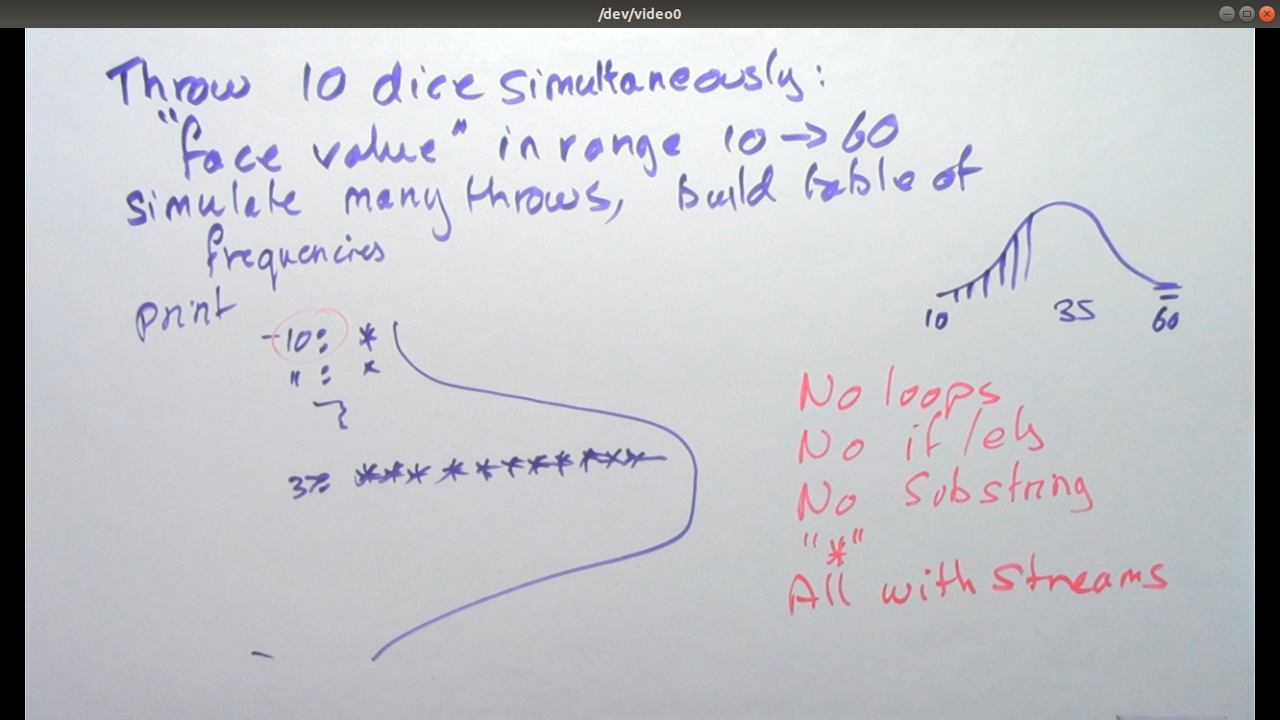 /dev/video0
Throw 10 dice simultaneously:
"face value" in range 10 → 60
simulate many throws, build table of
frequencies
print
10: *
" : *
37: ***********
10 35 60
No loops
No if/els
No substring
"*"
All with streams